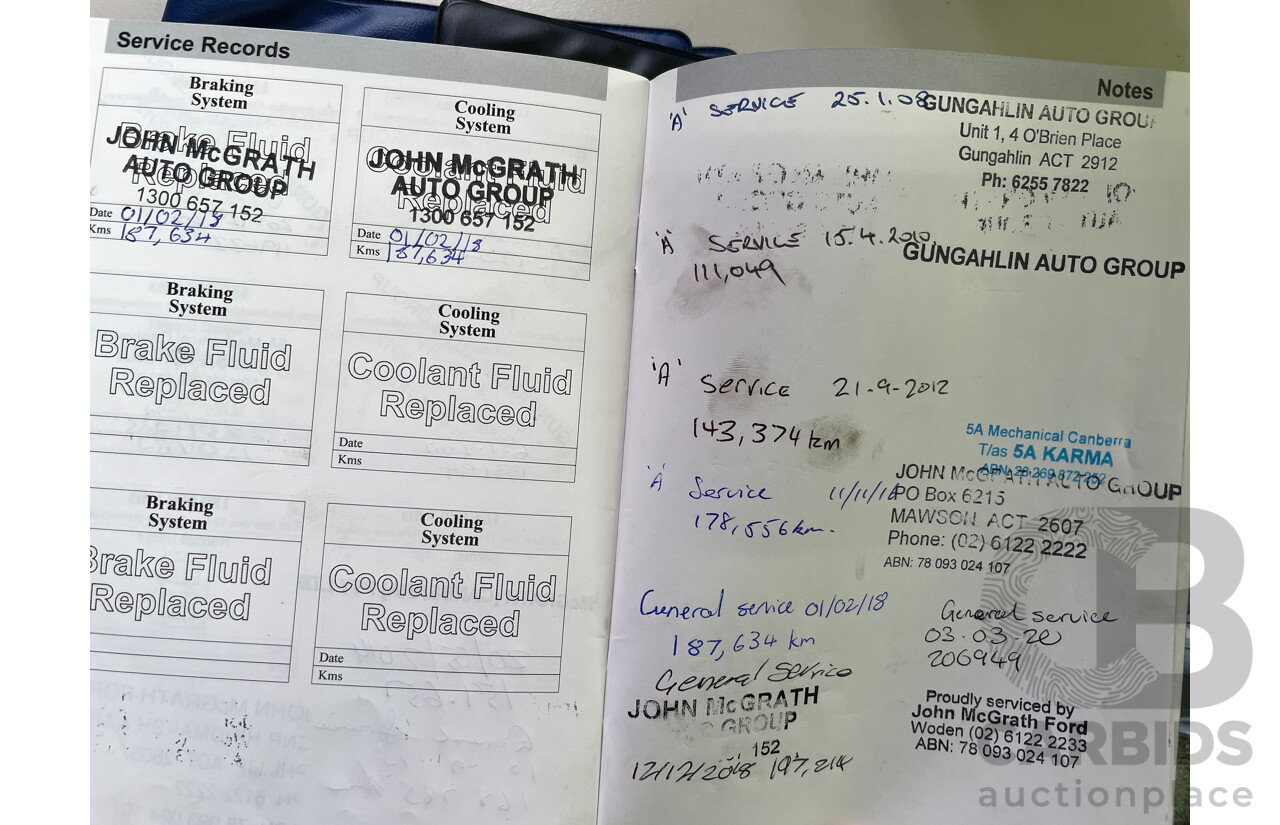 Service Records
Braking
System
Brake Fluid
Replaced
JOHN McGRATH
AUTO GROUP
1300 657 152
Date 01/02/18
Kms 187,634
Cooling
System
Coolant Fluid
Replaced
JOHN McGRATH
AUTO GROUP
1300 657 152
Date 01/02/18
Kms 187,634
Braking
System
Brake Fluid
Replaced
Cooling
System
Coolant Fluid
Replaced
Date
Kms
Braking
System
Brake Fluid
Replaced
Cooling
System
Coolant Fluid
Replaced
Date
Kms
Notes
'A' SERVICE 25.1.08
GUNGAHLIN AUTO GROUP
Unit 1, 4 O'Brien Place
Gungahlin ACT 2912
Ph: 6255 7822
'A' SERVICE 15.4.2010
111,049
GUNGAHLIN AUTO GROUP
'A' Service 21-9-2012
143,374 km
5A Mechanical Canberra
T/as 5A KARMA
ABN: 28 269 872 252
'A' Service 11/11/16
178,556 km.
JOHN McGRATH AUTO GROUP
PO Box 6215
MAWSON ACT 2607
Phone: (02) 6122 2222
ABN: 78 093 024 107
General service 01/02/18
187,634 km
General service
03.03.20
206949
General Service
JOHN McGRATH
GROUP
152
12/12/2018 197,214
Proudly serviced by
John McGrath Ford
Woden (02) 6122 2233
ABN: 78 093 024 107
CARBIDS
auctionplace